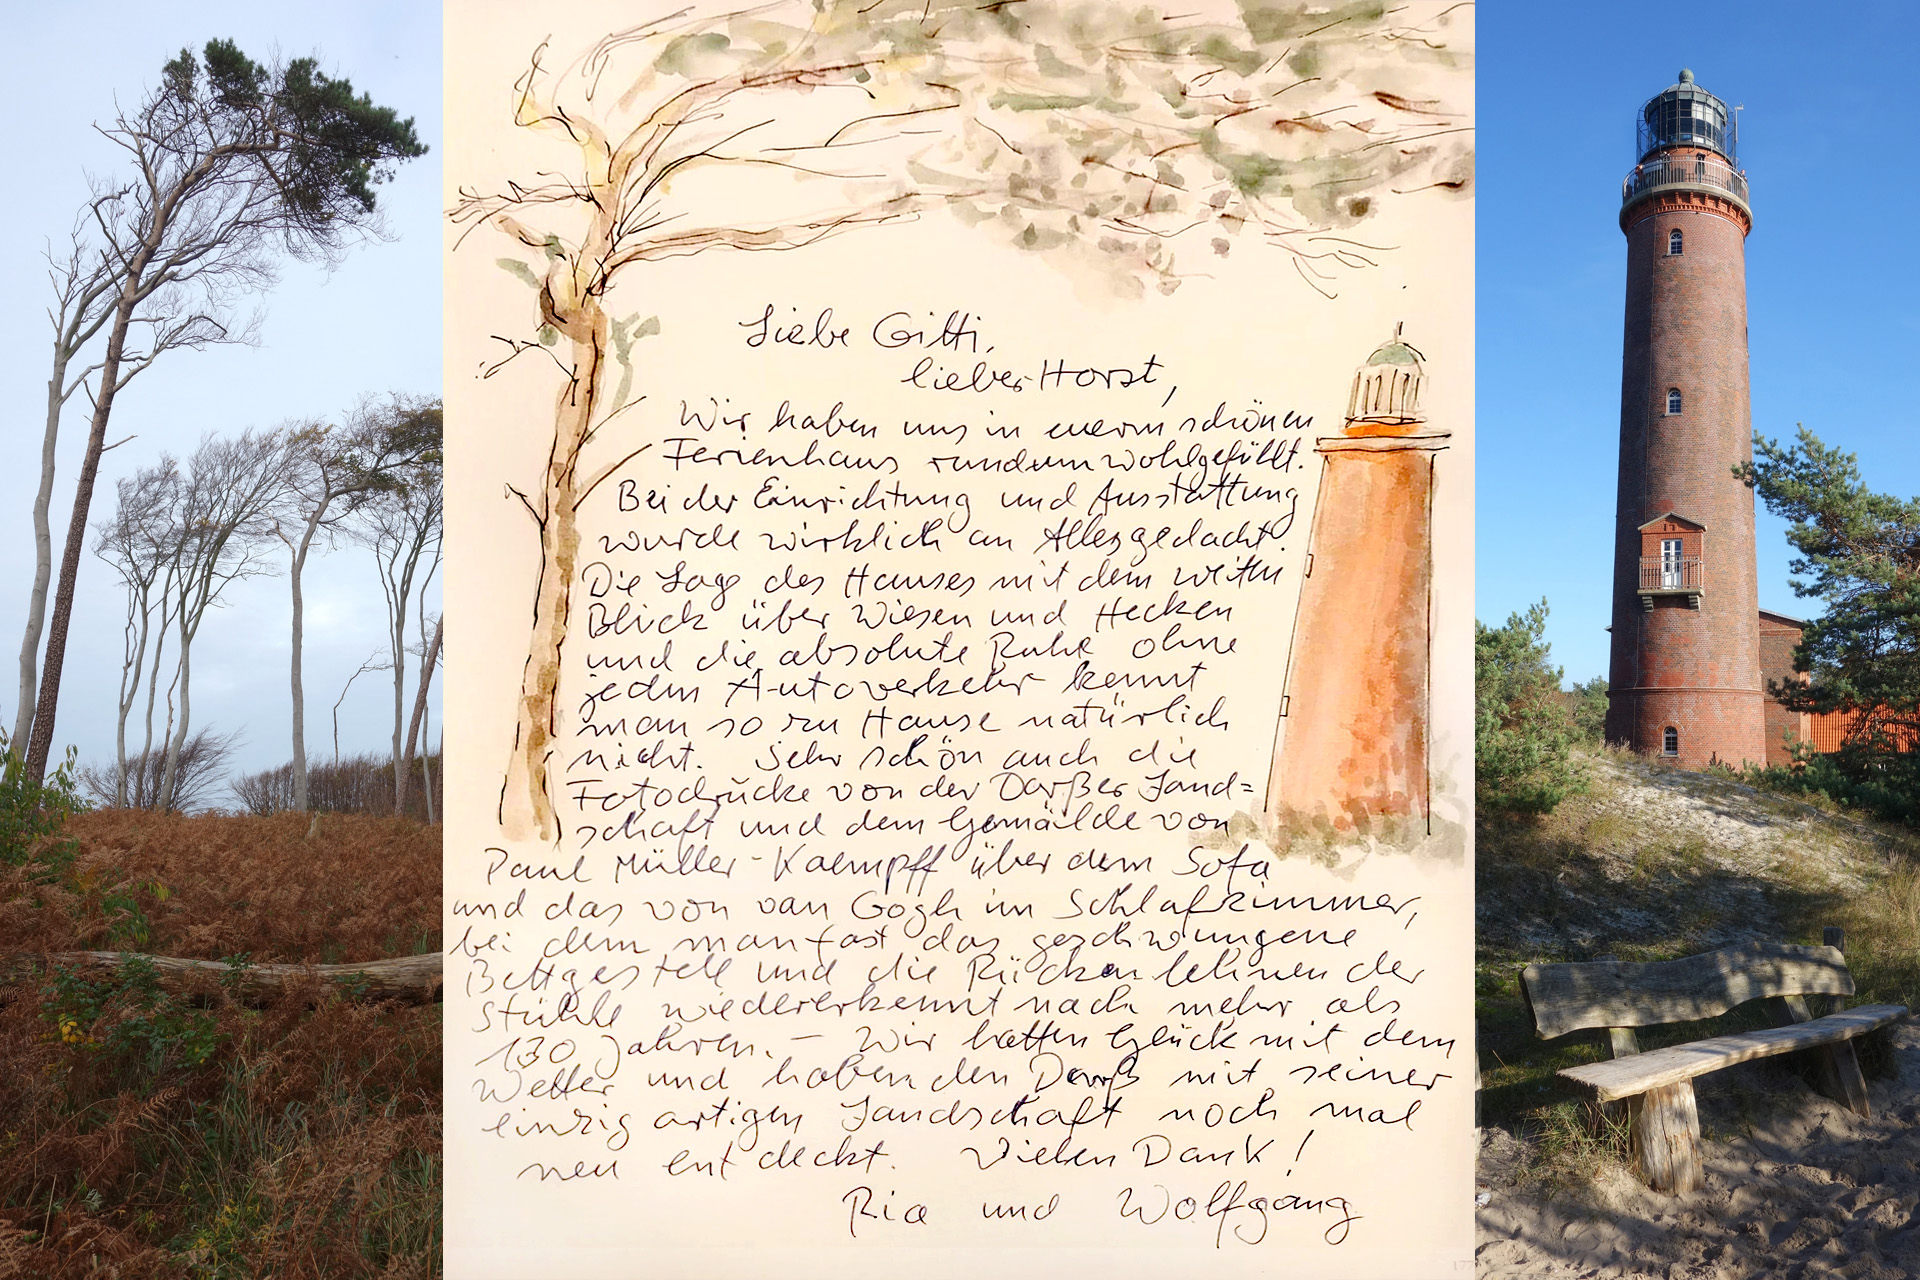 Liebe Gitti,
lieber Horst,
Wir haben uns in euerm schönen
Ferienhaus rundum wohlgefühlt.
Bei der Einrichtung und Ausstattung
wurde wirklich an Alles gedacht.
Die Lage des Hauses mit dem weiten
Blick über Wiesen und Hecken
und die absolute Ruhe ohne
jeden Autoverkehr kennt
man so zu Hause natürlich
nicht. Sehr schön auch die
Fotodrücke von der Darßer Land=
schaft und dem Gemälde von
Paul Müller-Kaempff über dem Sofa
und das von van Gogh im Schlafzimmer,
bei dem man fast das geschwungene
Bettgestell und die Rückenlehnen der
Stühle wiedererkennt nach mehr als
130 Jahren. – Wir hatten Glück mit dem
Wetter und haben den Darß mit seiner
einzigartigen Landschaft noch mal
neu entdeckt. Vielen Dank!
Ria und Wolfgang